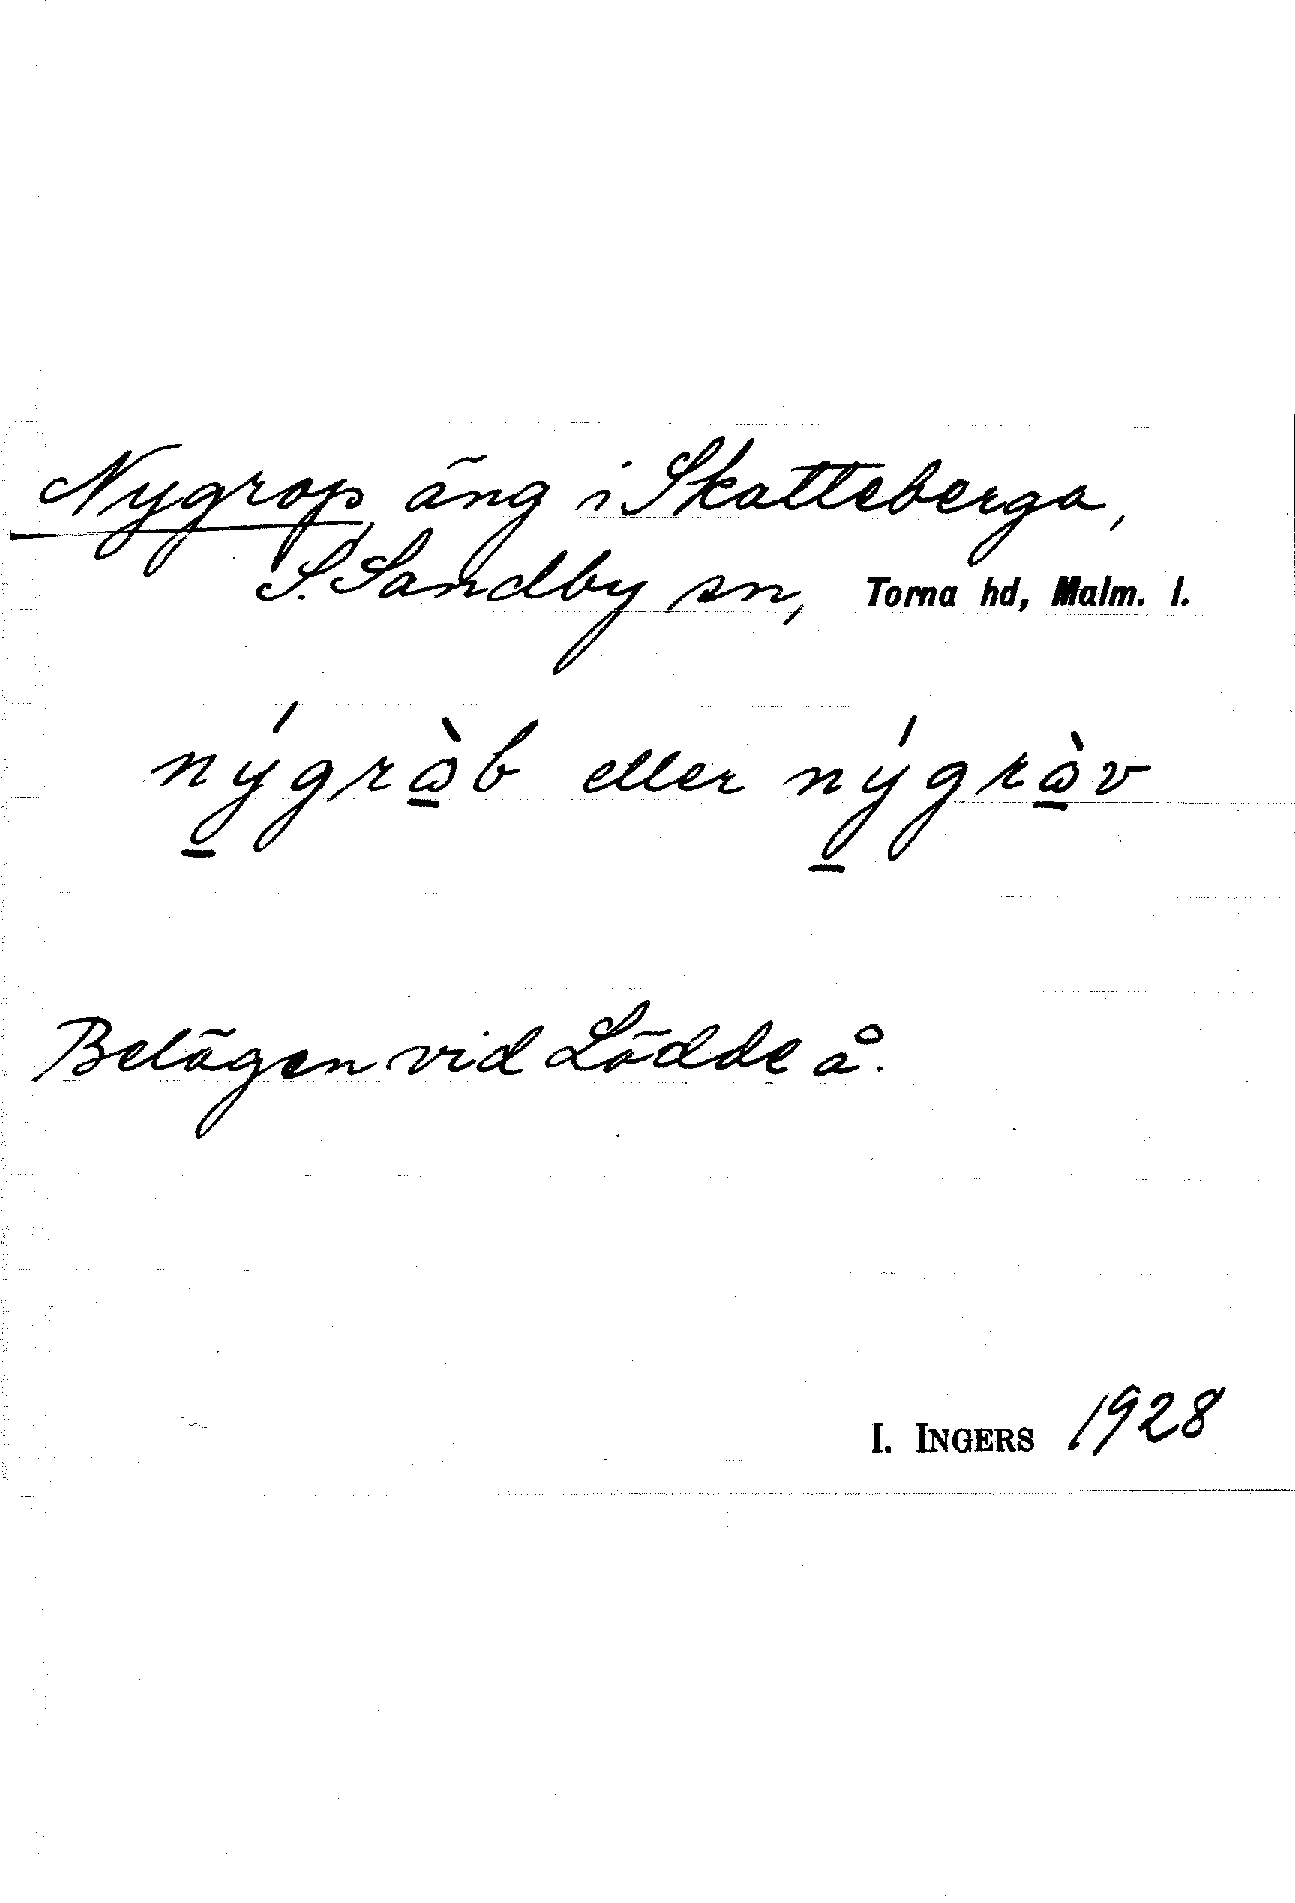 Nygrop, äng i Skatteberga,
S. Sandby sn, Torna hd, Malm. l.
nýgràb eller nýgràv
Belägen vid Lödde å.
I. INGERS 1928